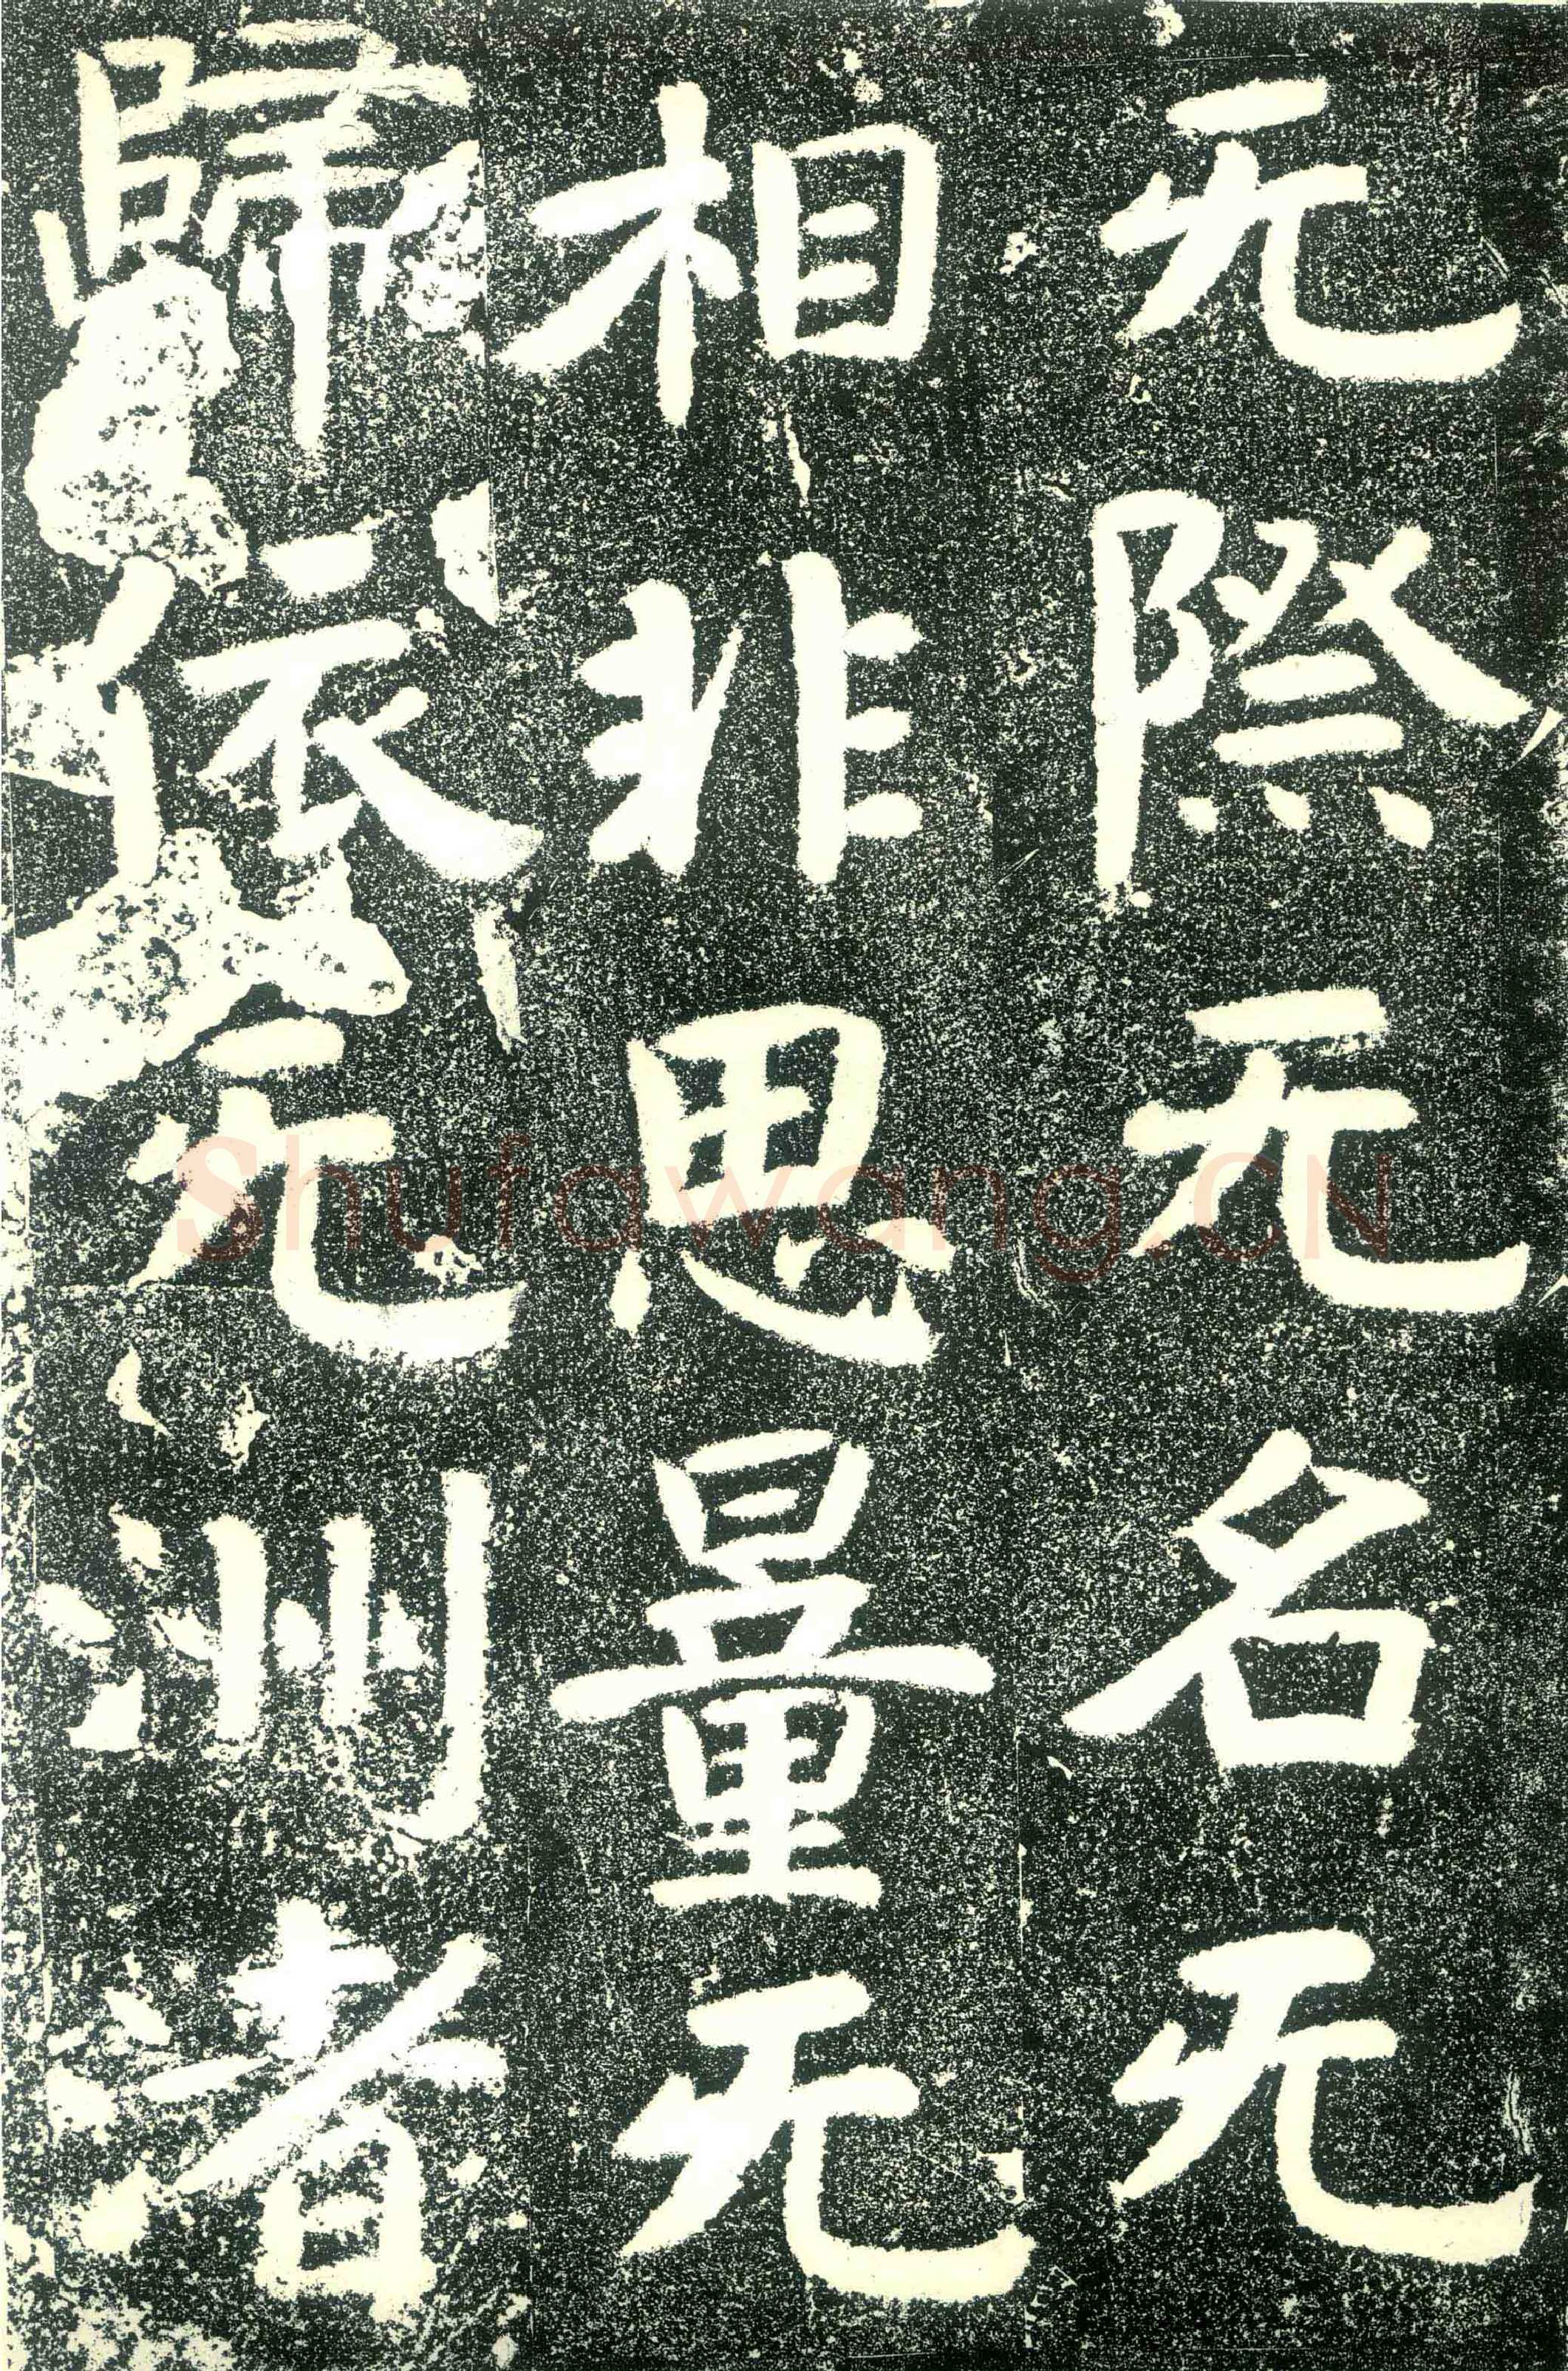 无際无名无
相非思量无
歸依无洲渚
Shufawang.CN